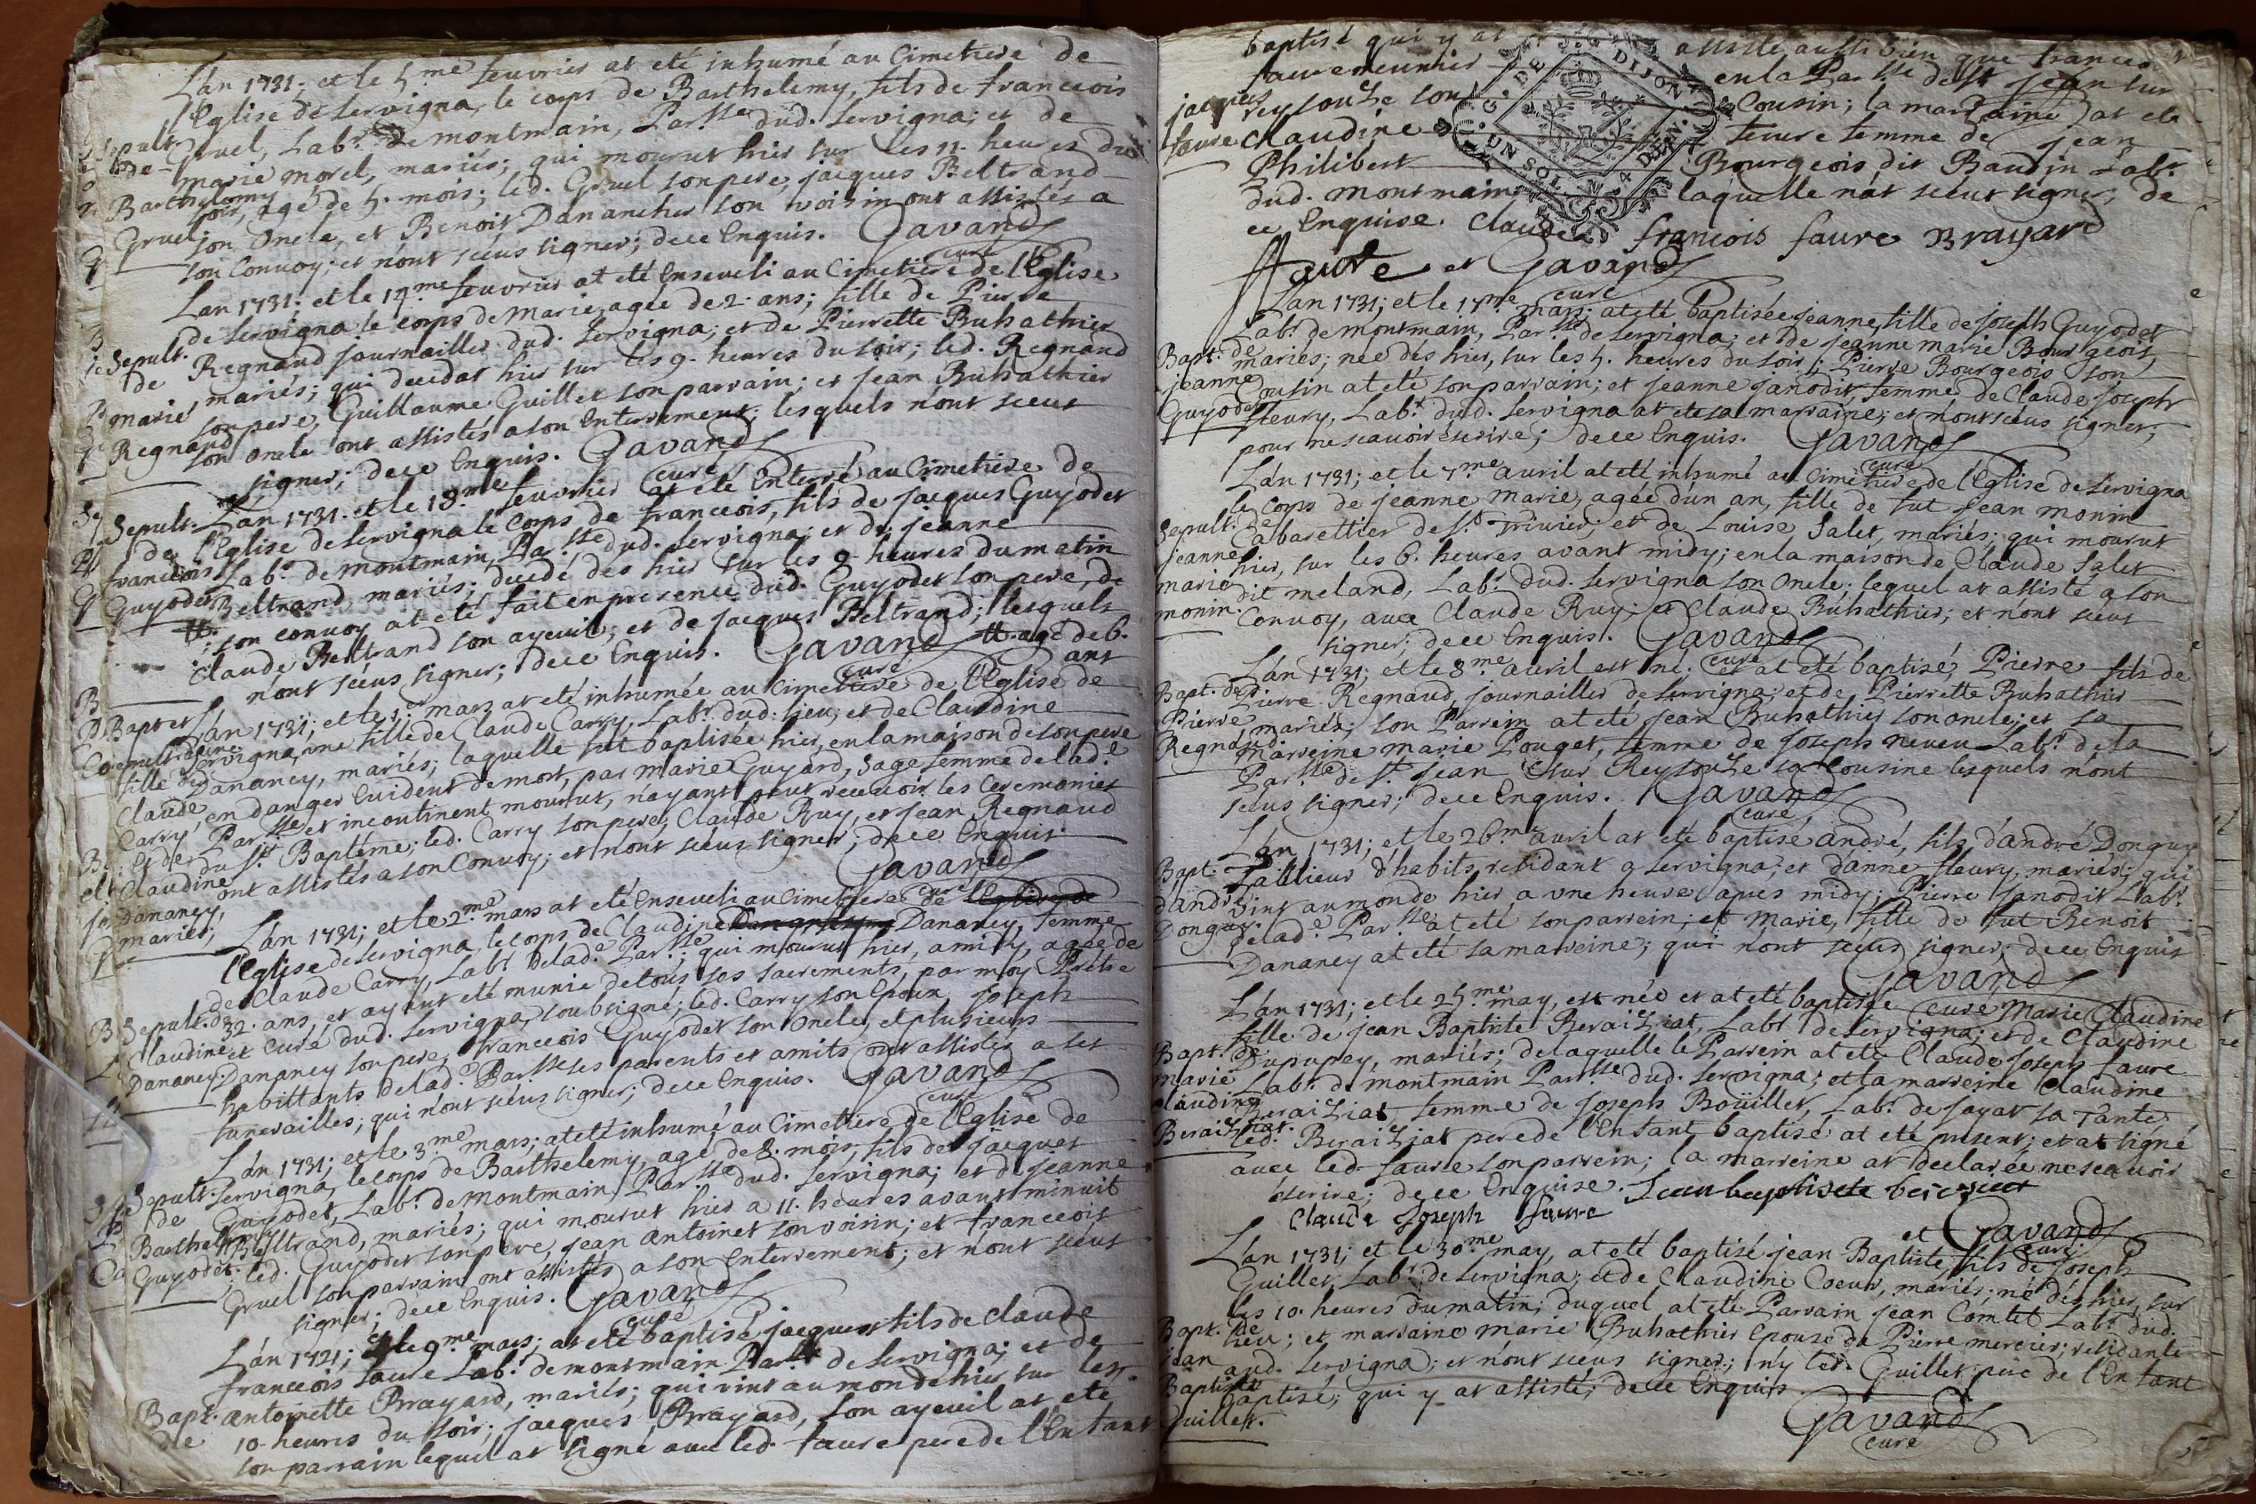 L'an 1731; et le 5.me feuvrier at eté inhumé au Cimetiere de
l'Eglise de Servigna, le corps de Barthelemy, fils de francois
Gruel, Lab.r de montmain, Par.sse dud. Servigna; et de
marie morel, mariés; qui mourut hier sur les 11. heures du
soir, agé de 5. mois; led. Gruel son pere, jacques Beltrand
son Oncle, et Benoit Dananches son voisin ont assistés a
son Convoy; et n'ont sceus signer; de ce Enquis. Gavand
curé
Sepult.
de
Barthelemy
Gruel
L'an 1731. et le 14.me feuvrier at eté Enseveli au Cimetiere de l'Eglise
de Servigna le corps de Marie, agée de 2. ans; fille de Pierre
Regnand journaillier dud. Servigna; et de Pierrette Buhathier
mariés; qui deceda hier sur les 9. heures du soir; led. Regnand
son pere, Guillaume Guillet son parrain; et jean Buhathier
son Oncle ont assistés a son Enterrement; lesquels n'ont sceut
signer; de ce Enquis. Gavand
curé
Sepult.
de
marie
Regnand
L'an 1731. et le 18.me feuvrier at eté Enterré au Cimetiere de
l'Eglise de Servigna le Corps de francois, fils de jacques Guyodet
Lab.r de montmain, Par.sse dud. Servigna; et de jeanne
Beltrand mariés; decedé des hier sur les 8. heures du matin
#. son convoy at eté fait en presence dud. Guyodet son pere, de
Claude Beltrand son ayeuil; et de jacques Beltrand; lesquels
n'ont sceus signer; de ce Enquis. Gavand #. agé de 6.
curé ans
Sepult.
de
francois
Guyodet
L'an 1731; et le 1.er mars at eté inhumée au Cimetiere de l'Eglise de
Servigna, une fille de Claude Carry, Lab.r dud. lieu; et de Claudine
Dananey, mariés; laquelle fut baptisée hier, en la maison de son pere
en danger Evident de mort, par marie Guyard, Sage femme de lad.e
Par.sse et incontinent mourut, n'ayant peut recevoir les Ceremonies
du S.t Baptême; led. Carry son pere, Claude Ruy, et jean Regnaud
ont assistés a son Convoy; et n'ont sceus signer; de ce Enquis.
Gavand
curé
Bapt. et
fille de
Claude
Carry
et de
Claudine
Dananey,
mariés;
L'an 1731; et le 2.me mars at eté Enseveli au Cimetiere de
l'Eglise de Servigna, le corps de Claudine Dananey, femme
de Claude Carry, Lab.r de lad.e Par.sse; qui mourut hier, a midy, agée de
32. ans, et ayant eté munie de tous ses sacrements, par moy Prêtre
et Curé dud. Servigna, soubsigné; led. Carry son Epoux, Joseph
Dananey son pere, francois Guyodet son Oncle, et plusieurs
habittants de lad.e Par.sse ses parents et amits ont assistés a ses
funerailles; qui n'ont sceus signer; de ce Enquis. Gavand
curé
Sepult. de
Claudine
Dananey.
L'an 1731; et le 3.me mars; at eté inhumé au Cimettiere de l'Eglise de
Servigna, le corps de Barthelemy, agé de 8. mois, fils de jacques
Guyodet, Lab.r de montmain, Par.sse dud. Servigna; et de jeanne
Beltrand, mariés; qui mourut hier a 11. heures avant minuit
; led. Guyodet son pere, jean antoinet son voisin; et francois
Gruel son parrain ont assistés a son Enterrement; et n'ont sceus
signer; de ce Enquis. Gavand
curé
Sepult.
de
Barthelemy
Guyodet.
L'an 1731; et le 9.me mars; at eté baptisé, jacques fils de Claude
francois faure Lab.r de montmain Par.sse de Servigna; et de
antoinette Brayard, mariés; qui vint au monde hier sur les
10. heures du soir; jacques Brayard, son ayeuil at eté
son parrain lequel at signé avec led. faure pere de l'Enfant
Bapt.
de
baptisé qui y at assisté, aussi bien que francois
faure meunier en la Par.sse de St jean sur
reysouze son Cousin; la marraine at eté
Claudine femme de jean
Philibert Bourgeois dit Baudin Lab.r
dud. montmain laquelle n'at sceut signer, de
ce Enquise. Claude francois faure Brayard
faure et Gavand
curé
jacques
faure
G. DE DIJON
UN SOL 4 DEN.
L'an 1731; et le 17.me mars; at eté baptisée jeanne, fille de joseph Guyodet
Lab.r de montmain, Par.sse de Servigna; et de jeanne marie Bourgeois,
mariés; née dés hier, sur les 5. heures du soir; Pierre Bourgeois son
Cousin at eté son parrain; et jeanne janodit, femme de Claude joseph
fleury, Lab.r dud. Servigna at eté sa marraine; et n'ont sceus signer,
pour ne scavoir écrire; de ce Enquis. Gavand
curé
Bapt. de
jeanne
Guyodet
L'an 1731; et le 7.me avril at eté inhumé au Cimètiere de l'Eglise de Servigna
le Corps de jeanne marie, agée d'un an, fille de fut jean monin
Cabarettier de S.t Trivier; et de Louise Salet, mariés; qui mourut
hier, sur les 6. heures avant midy; en la maison de Claude Salet
dit meland, Lab.r dud. Servigna son Oncle; lequel at assisté a son
Convoy, avec Claude Ruy; et Claude Buhathier; et n'ont sceus
signer; de ce Enquis. Gavand
curé
Sepult. de
jeanne
marie
monin.
L'an 1731; et le 8.me avril est né. et at eté baptisé, Pierre fils de
Pierre Regnaud, journaillier de Servigna; et de Pierrette Buhathier
mariés; son Parrein at eté jean Buhathier son oncle; et sa
marreine marie Pouget, femme de joseph neveu Lab.r de la
Par.sse de St. jean sur Reysouze sa Cousine lesquels n'ont
sceus signer; de ce Enquis. Gavand
curé
Bapt. de
Pierre
Regnaud
L'an 1731; et le 26.me avril at eté baptisé andré, fils d'andré Donguy
Tailleur d'habits, residant a Servigna; et d'anne fleury, mariés; qui
vint au monde hier, a une heure apres midy; Pierre janodit Lab.r
de lad.e Par.sse at eté son parrein; et Marie, fille de fut Benoit
Dananey at eté sa marreine; qui n'ont sceus signer; de ce Enquis
Gavand
curé
Bapt.
d'andré
Donguy.
L'an 1731; et le 25.me may, est née et at eté baptisée Marie Claudine
fille de jean Baptiste Beraiziat, Lab.r de Servigna; et de Claudine
Dupupey, mariés; de laquelle le Parrein at eté Claude joseph faure
Lab.r de montmain Par.sse dud. Servigna; et la marreine Claudine
Beraiziat femme de joseph Boüillet, Lab.r de jayat sa Tante;
led. Beraiziat pere de l'Enfant baptisé at eté present; et at signé
avec led. faure son parrein; la marreine at declarée ne scavoir
écrire; de ce Enquise.
Claude Joseph faure
et Gavand
curé
Bapt. de
marie
claudine
Beraiziat.
L'an 1731; et le 30.me may, at eté baptisé jean Baptiste, fils de joseph
Guillet, Lab.r de Servigna; et de Claudine Coeur, mariés; né dés hier, sur
les 10. heures du matin; duquel at eté Parrain jean Comtet Lab.r dud.
lieu; et marraine marie Buhathier Epouse de Pierre mercier; residante
aud. Servigna; et n'ont sceus signer; n'y led. Guillet pere de l'Enfant
baptisé; qui y at assisté; de ce Enquis.
Gavand
curé
Bapt. de
jean
Baptiste
Guillet.